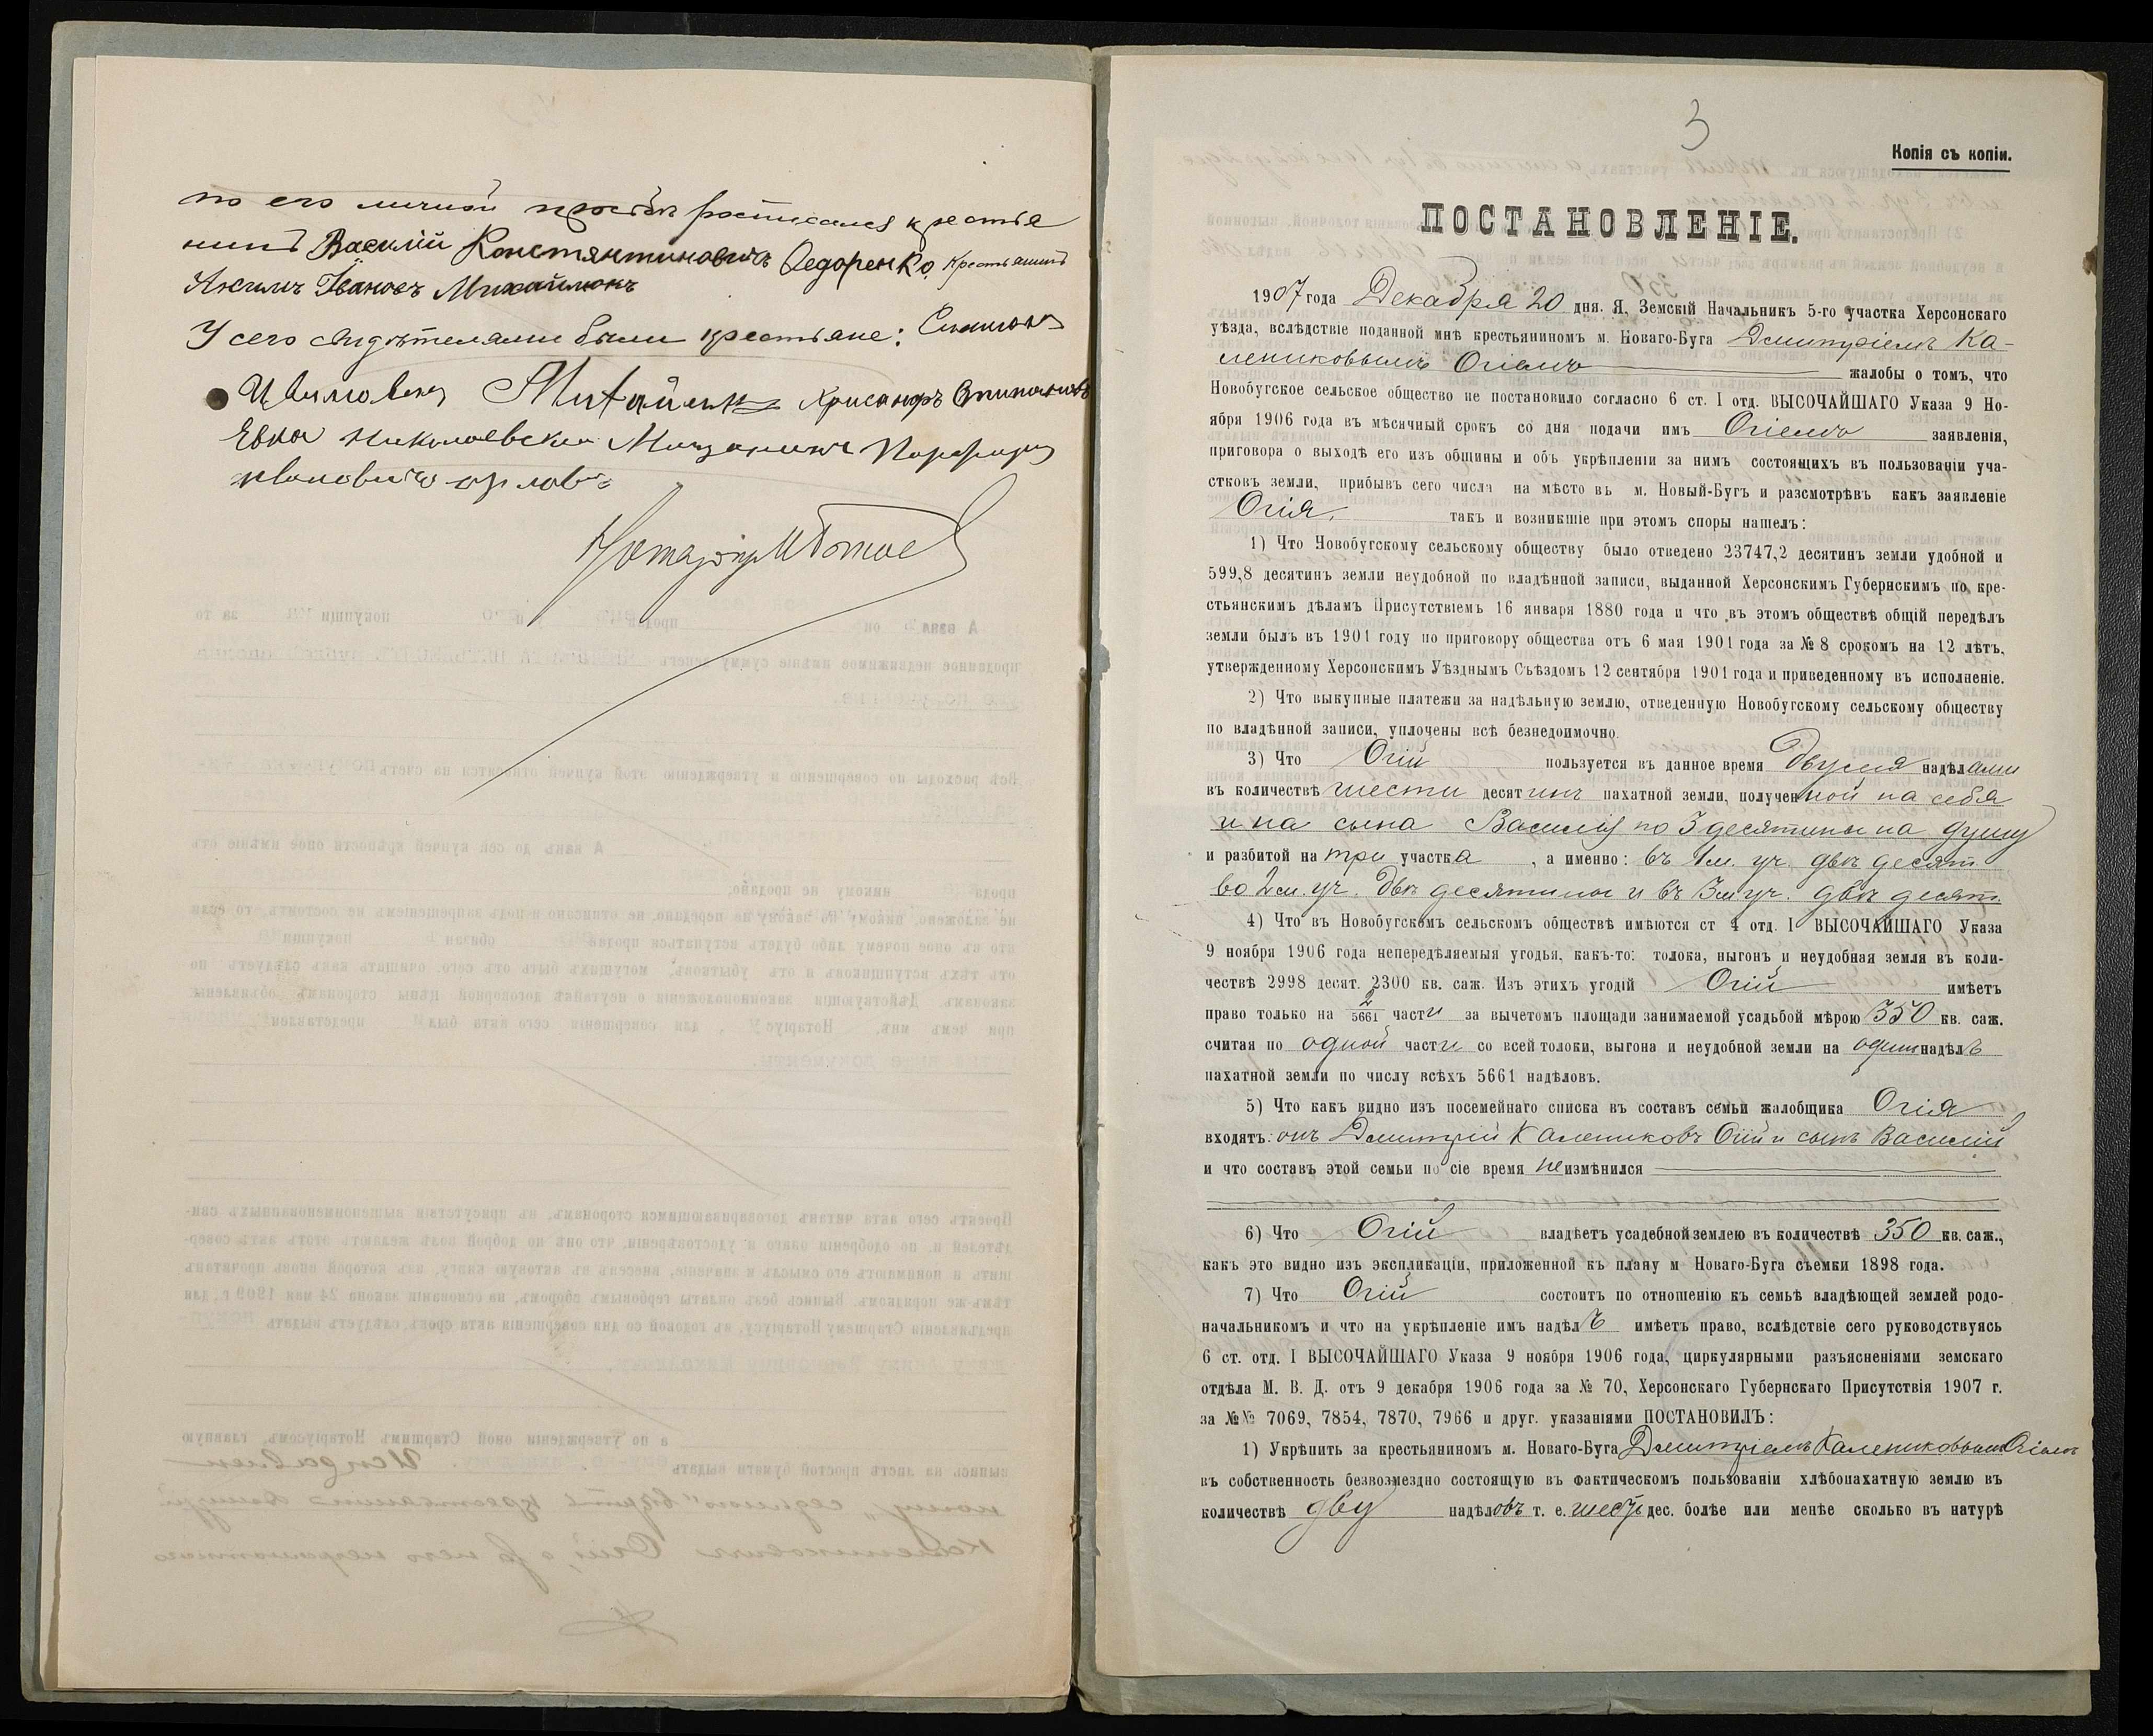 по его личной просьбе росписался крестья
нинъ Василій Констянтиновичъ Федоренко. Крестьянинъ
Якимъ Ивановъ Михайлюкъ
У сего свидѣтелями были крестьяне: Симионъ
Хрисанфъ
Николаевский Порфирий
Ивановичъ Орловъ
Нотаріусъ
3
Копія съ копіи.
ПОСТАНОВЛЕНІЕ.
1907 года Декабря 20 дня. Я, Земскій Начальникъ 5-го участка Херсонскаго
уѣзда, вслѣдствіе поданной мнѣ крестьянином м. Новаго-Буга Дмитріемъ Ка-
лениковымъ Огіемъ жалобы о томъ, что
Новобугское сельское общество не постановило согласно 6 ст. I отд. ВЫСОЧАЙШАГО Указа 9 Но-
ября 1906 года въ мѣсячный срокъ со дня подачи имъ Огіемъ заявленія,
приговора о выходѣ его изъ общины и объ укрѣпленіи за нимъ состоящихъ въ пользованіи уча-
стковъ земли, прибывъ сего числа на мѣсто въ м. Новый-Бугъ и разсмотрѣвъ какъ заявленіе
Огія, такъ и возникшіе при этомъ споры нашелъ:
1) Что Новобугскому сельскому обществу было отведено 23747,2 десятинъ земли удобной и
599,8 десятинъ земли неудобной по владѣнной записи, выданной Херсонскимъ Губернскимъ по кре-
стьянскимъ дѣламъ Присутствіемъ 16 января 1880 года и что въ этомъ обществѣ общій передѣлъ
земли былъ въ 1901 году по приговору общества отъ 6 мая 1901 года за № 8 срокомъ на 12 лѣтъ,
утвержденному Херсонскимъ Уѣзднымъ Съѣздомъ 12 сентября 1901 года и приведенному въ исполненіе.
2) Что выкупные платежи за надѣльную землю, отведенную Новобугскому сельскому обществу
по владѣнной записи, уплочены всѣ безнедоимочно.
3) Что Огій пользуется въ данное время двумя надѣлами
въ количествѣ шести десятинъ пахатной земли, полученной на себя
и на сына Василія по 3 десятины на душу
и разбитой на три участка, а именно: въ 1м. уч. двѣ десят.
во 2м. уч. двѣ десятины и въ 3м уч. двѣ десят.
4) Что въ Новобугскомъ сельскомъ обществѣ имѣются ст 4 отд. I ВЫСОЧАЙШАГО Указа
9 ноября 1906 года непередѣляемыя угодья, какъ-то: толока, выгонъ и неудобная земля въ коли-
чествѣ 2998 десят. 2300 кв. саж. Изъ этихъ угодій Огій имѣетъ
право только на 2/5661 части за вычетомъ площади занимаемой усадьбой мѣрою 350 кв. саж.
считая по одной части со всей толоки, выгона и неудобной земли на одинъ надѣлъ
пахатной земли по числу всѣхъ 5661 надѣловъ.
5) Что какъ видно изъ посемейнаго списка въ составъ семьи жалобщика Огія
входятъ: онъ Дмитрій Калениковъ Огій и сынъ Василій
и что составъ этой семьи по сіе время неизмѣнился
6) Что Огій владѣетъ усадебной землею въ количествѣ 350 кв. саж.,
какъ это видно изъ экспликаціи, приложенной къ плану м Новаго-Буга съемки 1898 года.
7) Что Огій состоитъ по отношенію къ семьѣ владѣющей землей родо-
начальникомъ и что на укрѣпленіе имъ надѣлъ имѣетъ право, вслѣдствіе сего руководствуясь
6 ст. отд. I ВЫСОЧАЙШАГО Указа 9 ноября 1906 года, циркулярными разъясненіями земскаго
отдѣла М. В. Д. отъ 9 декабря 1906 года за № 70, Херсонскаго Губернскаго Присутствія 1907 г.
за №№ 7069, 7854, 7870, 7966 и друг. указаніями ПОСТАНОВИЛЪ:
1) Укрѣпить за крестьянином м. Новаго-Буга Дмитріемъ Калениковымъ Огіемъ
въ собственность безвозмездно состоящую въ фактическомъ пользованіи хлѣбопахатную землю въ
количествѣ дву надѣловъ т. е. шесть дес. болѣе или менѣе сколько въ натурѣ